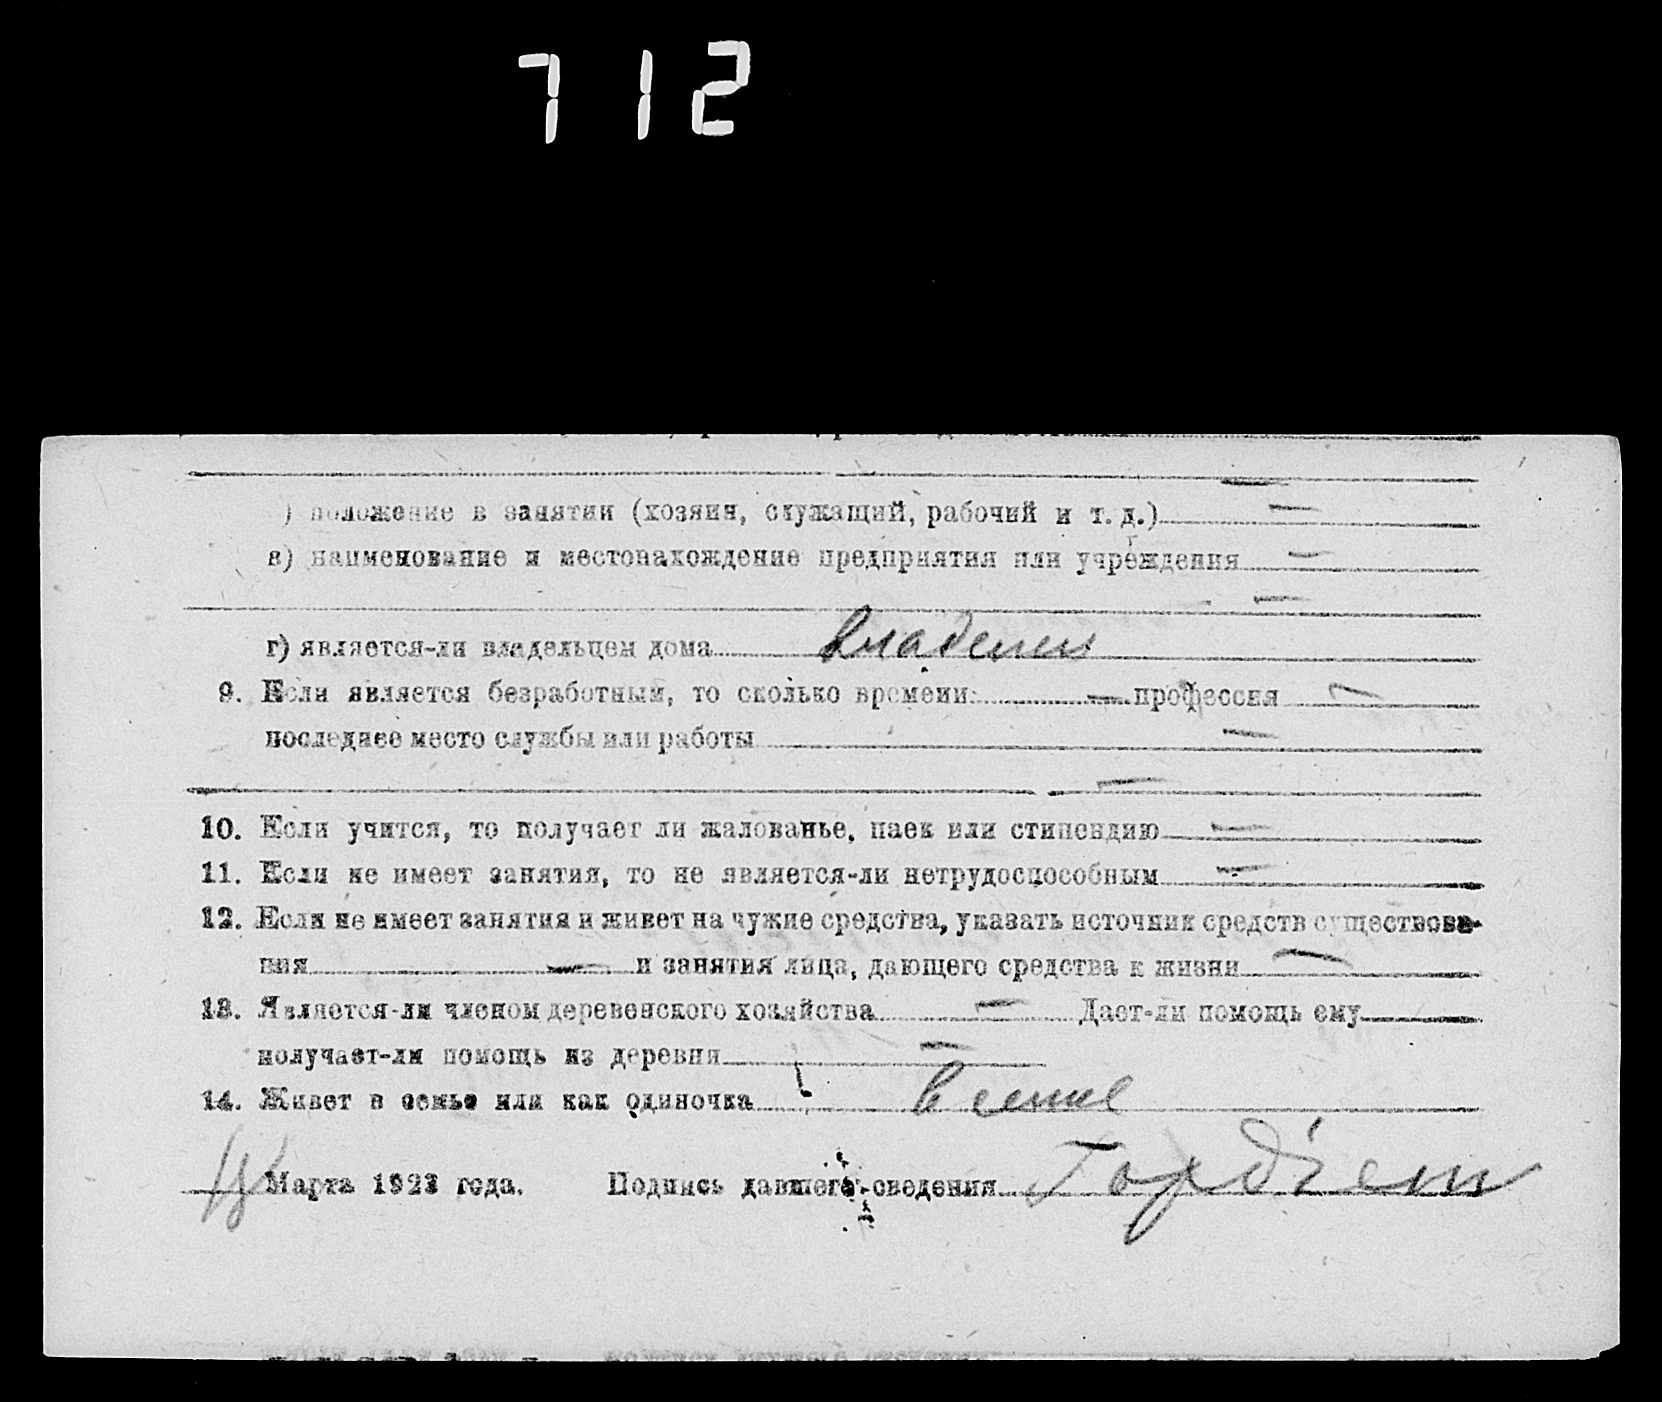 712
) положение в занятии (хозяин, служащий, рабочий и т. д.) —
в) наименование и местонахождение предприятия или учреждения —
—
г) является-ли владельцем дома владелец
9. Если является безработным, то сколько времени — профессия —
последнее место службы или работы —
—
10. Если учится, то получает ли жалованье, паек или стипендию —
11. Если не имеет занятия, то не является-ли нетрудоспособным —
12. Если не имеет занятия и живет на чужие средства, указать источник средств существова-
ния — и занятия лица, дающего средства к жизни —
13. Является-ли членом деревенского хозяйства — Дает-ли помощь ему
получает-ли помощь из деревни —
14. Живет в семье или как одиночка в семье
Марта 1923 года. Подпись давшего сведения